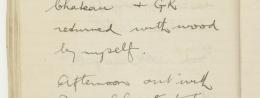 Chateau & GK
returned with wood
by myself.
Afternoon out with